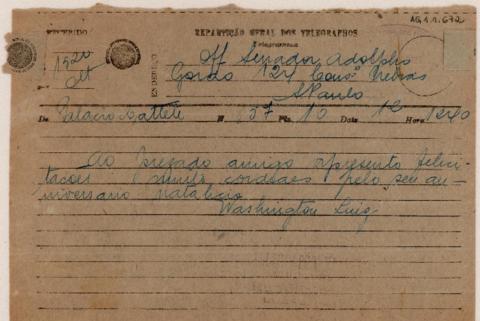 AG.1.1.672
RECEBIDO
REPARTIÇÃO GERAL DOS TELEGRAPHOS
Telegramma
1920
ENDEREÇO
Off Senador Adolpho
Gordo 127 Cons° Nebias
S Paulo
De Palacio Cattete N. 37 Pls. 10 Data 12 Hora 1240
Ao presado amigo apresento felici-
tacoes muito cordeaes pelo seu an-
niversario natalicio
Washington Luiz